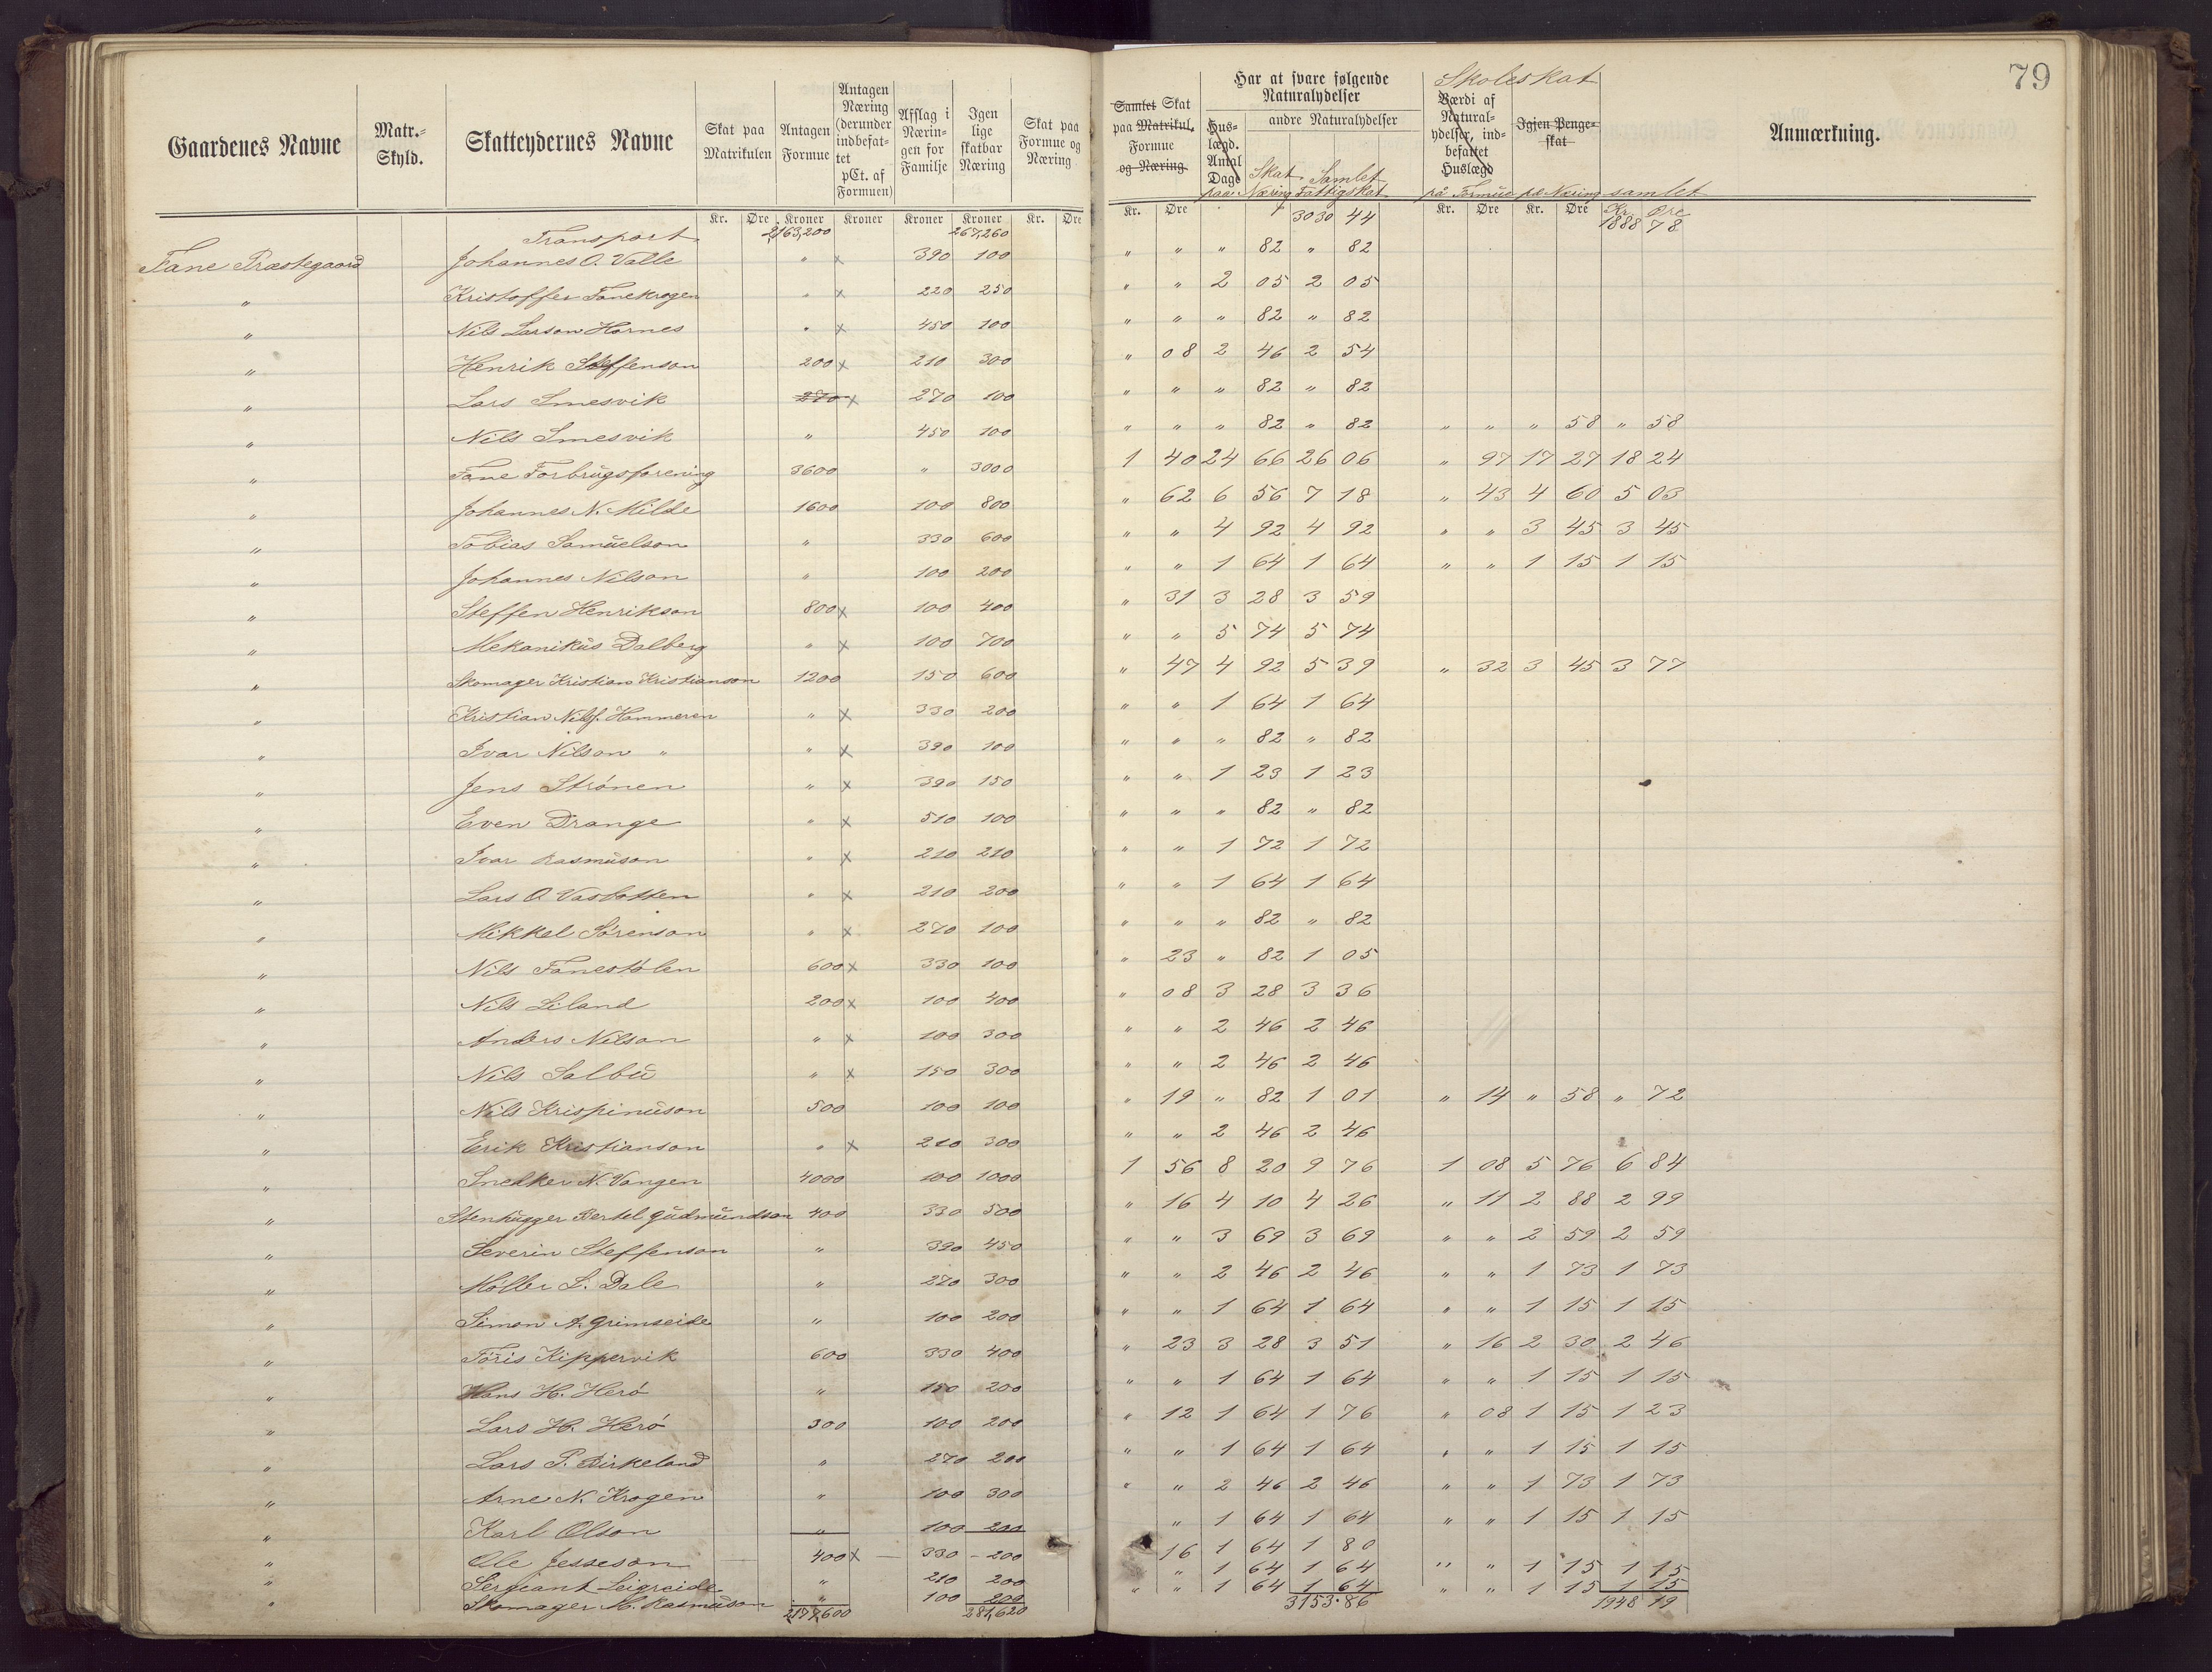 79
Gaardenes Navne | Matr.-Skyld. | Skatteydernes Navne | Skat paa Matrikulen | Antagen Formue | Antagen Næring (derunder indbefattet pCt. af Formuen) | Afslag i Næringen for Familje | Igen lige skatbar Næring | Skat paa Formue og Næring | Samlet Skat paa Matrikul, Formue og Næring | Har at svare følgende Naturalydelser | Huslægd. Antal Dage | andre Naturalydelser | Skat paa Næring | Samlet Fattigskat | Skoleskat | Værdi af Naturalydelser, indbefattet Huslægd | på Formue | Igjen Pengeskat | på Næring | samlet | Anmærkning.
Kr. Øre Kroner Kroner Kroner Kroner Kr. Øre Kr. Øre Kr. Øre Kr. Øre Kr. Øre
Transport 2,163,200 267,260 3030 44 1888 78
Fane Præstegaard Johannes O. Valle " x 390 100 " " " 82 " 82
" Kristoffer Fanekrogen " x 220 250 " " 2 05 2 05
" Nils Larson Hornes " x 450 100 " " " 82 " 82
" Henrik Steffenson 200 x 210 300 " 08 2 46 2 54
" Lars Smesvik 270 x 270 100 " " " 82 " 82
" Nils Smesvik " 450 100 " " " 82 " 82 " " " 58 " 58
" Fane Forbrugsforening 3600 " 3000 1 40 24 66 26 06 " 97 17 27 18 24
" Johannes N. Milde 1600 100 800 " 62 6 56 7 18 " 43 4 60 5 03
" Tobias Samuelson " 330 600 " " 4 92 4 92 " " 3 45 3 45
" Johannes Nilson " 100 200 " " 1 64 1 64 " " 1 15 1 15
" Steffen Henrikson 800 x 100 400 " 31 3 28 3 59
" Mekanikus Dalberg " x 100 700 " " 5 74 5 74
" Skomager Kristian Kristianson 1200 150 600 " 47 4 92 5 39 " 32 3 45 3 77
" Kristian Nilsf. Hammeren " x 330 200 " " 1 64 1 64
" Ivar Nilson " " x 390 100 " " " 82 " 82
" Jens Strönen " x 390 150 " " 1 23 1 23
" Even Drange " x 510 100 " " " 82 " 82
" Ivar Rasmuson " x 210 210 " " 1 72 1 72
" Lars O. Vasbotten " x 210 200 " " 1 64 1 64
" Mikkel Sörenson " x 270 100 " " " 82 " 82
" Nils Fanestølen 600 x 330 100 " 23 " 82 1 05
" Nils Liland 200 x 100 400 " 08 3 28 3 36
" Anders Nilson " x 100 300 " " 2 46 2 46
" Nils Salbu " x 150 300 " " 2 46 2 46
" Nils Krispinuson 500 100 100 " 19 " 82 1 01 " 14 " 58 " 72
" Erik Kristianson " x 210 300 " " 2 46 2 46
" Snedker N. Vangen 4000 100 1000 1 56 8 20 9 76 1 08 5 76 6 84
" Stenhugger Bertel Gudmundson 400 330 500 " 16 4 10 4 26 " 11 2 88 2 99
" Severin Steffenson " 390 450 " " 3 69 3 69 " " 2 59 2 59
" Möller L. Dale " 270 300 " " 2 46 2 46 " " 1 73 1 73
" Simon A. Grimseide " 100 200 " " 1 64 1 64 " " 1 15 1 15
" Töris Kippervik 600 330 400 " 23 3 28 3 51 " 16 2 30 2 46
" Hans H. Herö " 150 200 " " 1 64 1 64 " " 1 15 1 15
" Lars H. Herö 300 100 200 " 12 1 64 1 76 " 08 1 15 1 23
" Lars P. Birkeland " 270 200 " " 1 64 1 64 " " 1 15 1 15
" Arne N. Krogen " 100 300 " " 2 46 2 46 " " 1 73 1 73
" Karl Olson " 100 200 " 1 64 1 64 " " 1 15 1 15
" Ole Jesseson 400 x 330 - 200 16 1 64 1 80
" Sergeant Leigreide " 210 200 " 1 64 1 64 " " 1 15 1 15
" Skomager M. Rasmuson " 100 200 " " 1 64 1 64 " " 1 15 1 15
2,177,600 281,620 3153.86 1948 19